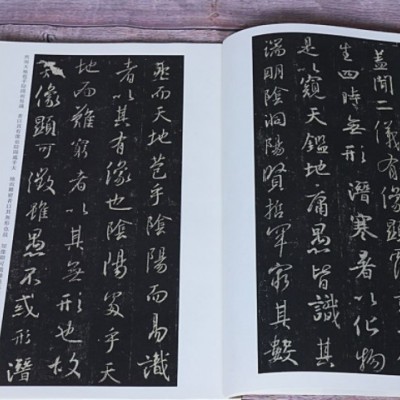 蓋聞二儀有像顯
生四時無形潛寒暑以化物
是以窺天鑑地庸愚皆識其
端明陰洞陽賢哲罕窮其數
然而天地苞乎陰陽而易識
者以其有像也陰陽處乎天
地而難窮者以其無形也故
像顯可徵雖愚不惑形潛